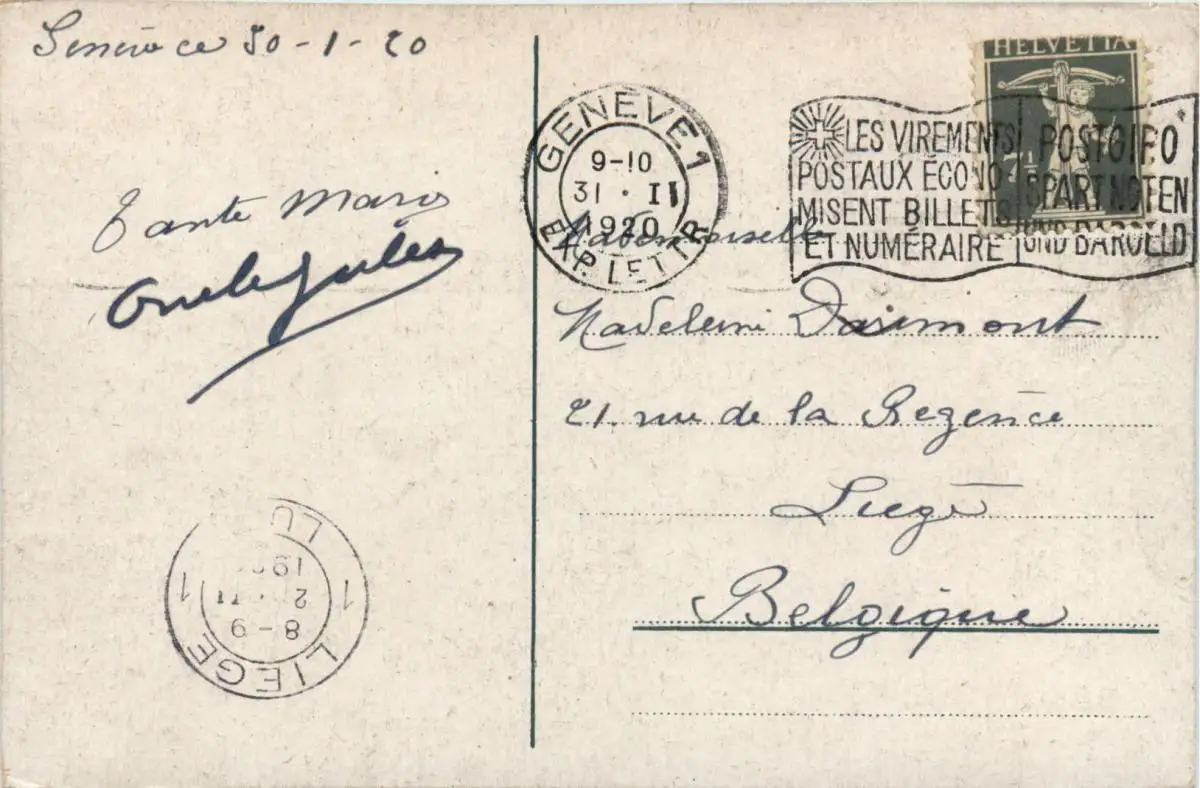 Genève ce 30-1-20
Tante Marie
Oncle Jules
HELVETIA
7½
GENÈVE 1
9-10
31 · II
1920
EXP. LETTR.
LES VIREMENTS
POSTAUX ÉCONO-
MISENT BILLETS
ET NUMÉRAIRE
POSTGIRO
SPART NOTEN
UND BARGELD
Mademoiselle
Madeleine Darimont
21. rue de la Regence
Liège
Belgique
LIEGE 1 LU 1
8-9
2
19